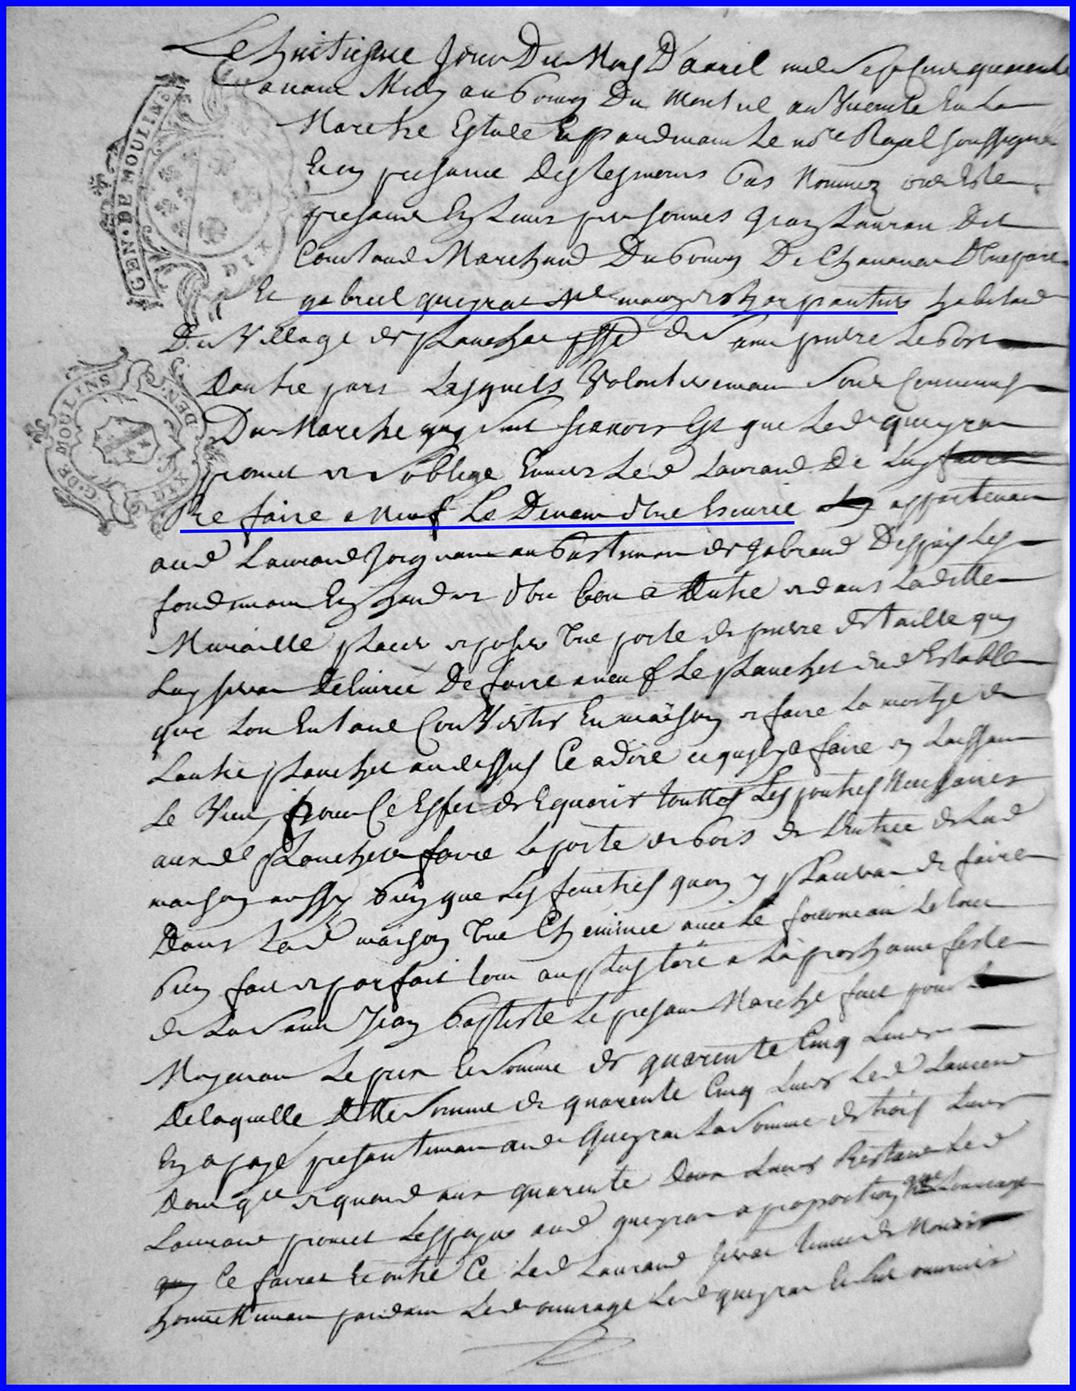 Le huitiesme Jour Du Moys D'avril mil Sept Cent quarente
avant Midy au bourg Du Monteil au Vicomte En La
Marche Estude Et pardevant Le no.re Royal soussigné
Et en presance Des tesmoins bas Nommez ont Este
presants En Leurs personnes Jean Lauran dit
Courtaud Marchand Du bourg De Chavanat D'Une part
Et gabriel queyrat M.e masson et charpantier habitant
Du Village de planchat psse de Saint pierre Le Bost
D'autre part Lesquels Volontairemant Sont Convenus
Du Marche quy Suit scavoir Est que Led queyrat
promet et s'oblige Envers Led Laurand De Luy
Re faire a Neuf Le Devant d'Une Escurie appartenant
aud Laurand Joignant au bastiment de gabriaud Despuis Les
fondemant En haut et d'Un bout a L'autre et dans Laditte
Muraille placer et poser Une porte de pierre de taille quy
Luy serat Delivree De faire a neuf Le plancher dud Estable
que L'on Entand Convertir En maison et faire La moitye de
L'autre plancher au dessus C'e a dire ce quy est a faire en Laissant
Le Vieux, pour Ce Effet de Equarir touttes Les poutres Necessaires
auxd planchers faire La porte de bois de L'entree de Lad
maison aussy bien que Les fenetres quon y plaserat de faire
Dans Lad maison Une Cheminee avec Le fourneau Le tout
bien fait et parfait tout au plus tard a La prochaine feste
de La Saint Jean baptiste Le presant Marche fait pour
Moyenant Le prix Et Somme de quarente Cinq Livres
De laquelle ditte Somme de quarente Cinq Livres Led Laurand
En a payé presantemant aud queyrat La Somme de trois Livres
Dont q.ce et quand aux quarente Deux Livres Restant Led
Laurand promet Les payer aud queyrat a proportion que L'ouvrage
Ce fairat Et outre Ce Led Laurand serat tenu de Nourir
honnettemant pandant Led ouvrage Led queyrat Et Ses ouvriers
GEN. DE MOULINS
DIX
G.DE MOULINS
DIX DEN.